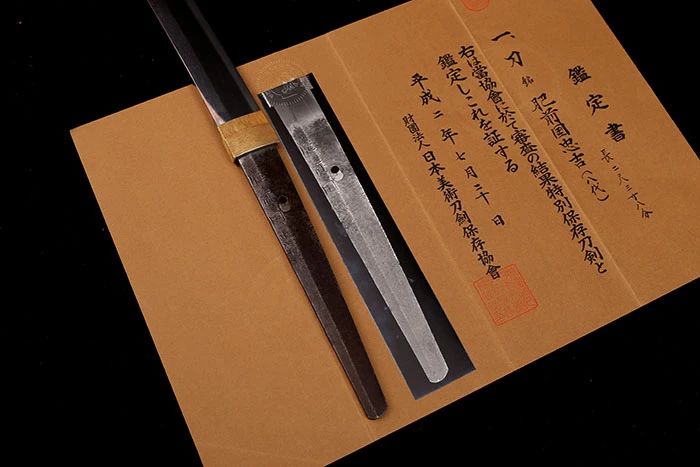 鑑定書
一、刀 銘 肥前国忠吉(八代)
長二尺三寸八分
右は當協會に於て審査の結果特別保存刀剣と
鑑定しこれを証する
平成二年七月二十日
財団法人日本美術刀剣保存協會